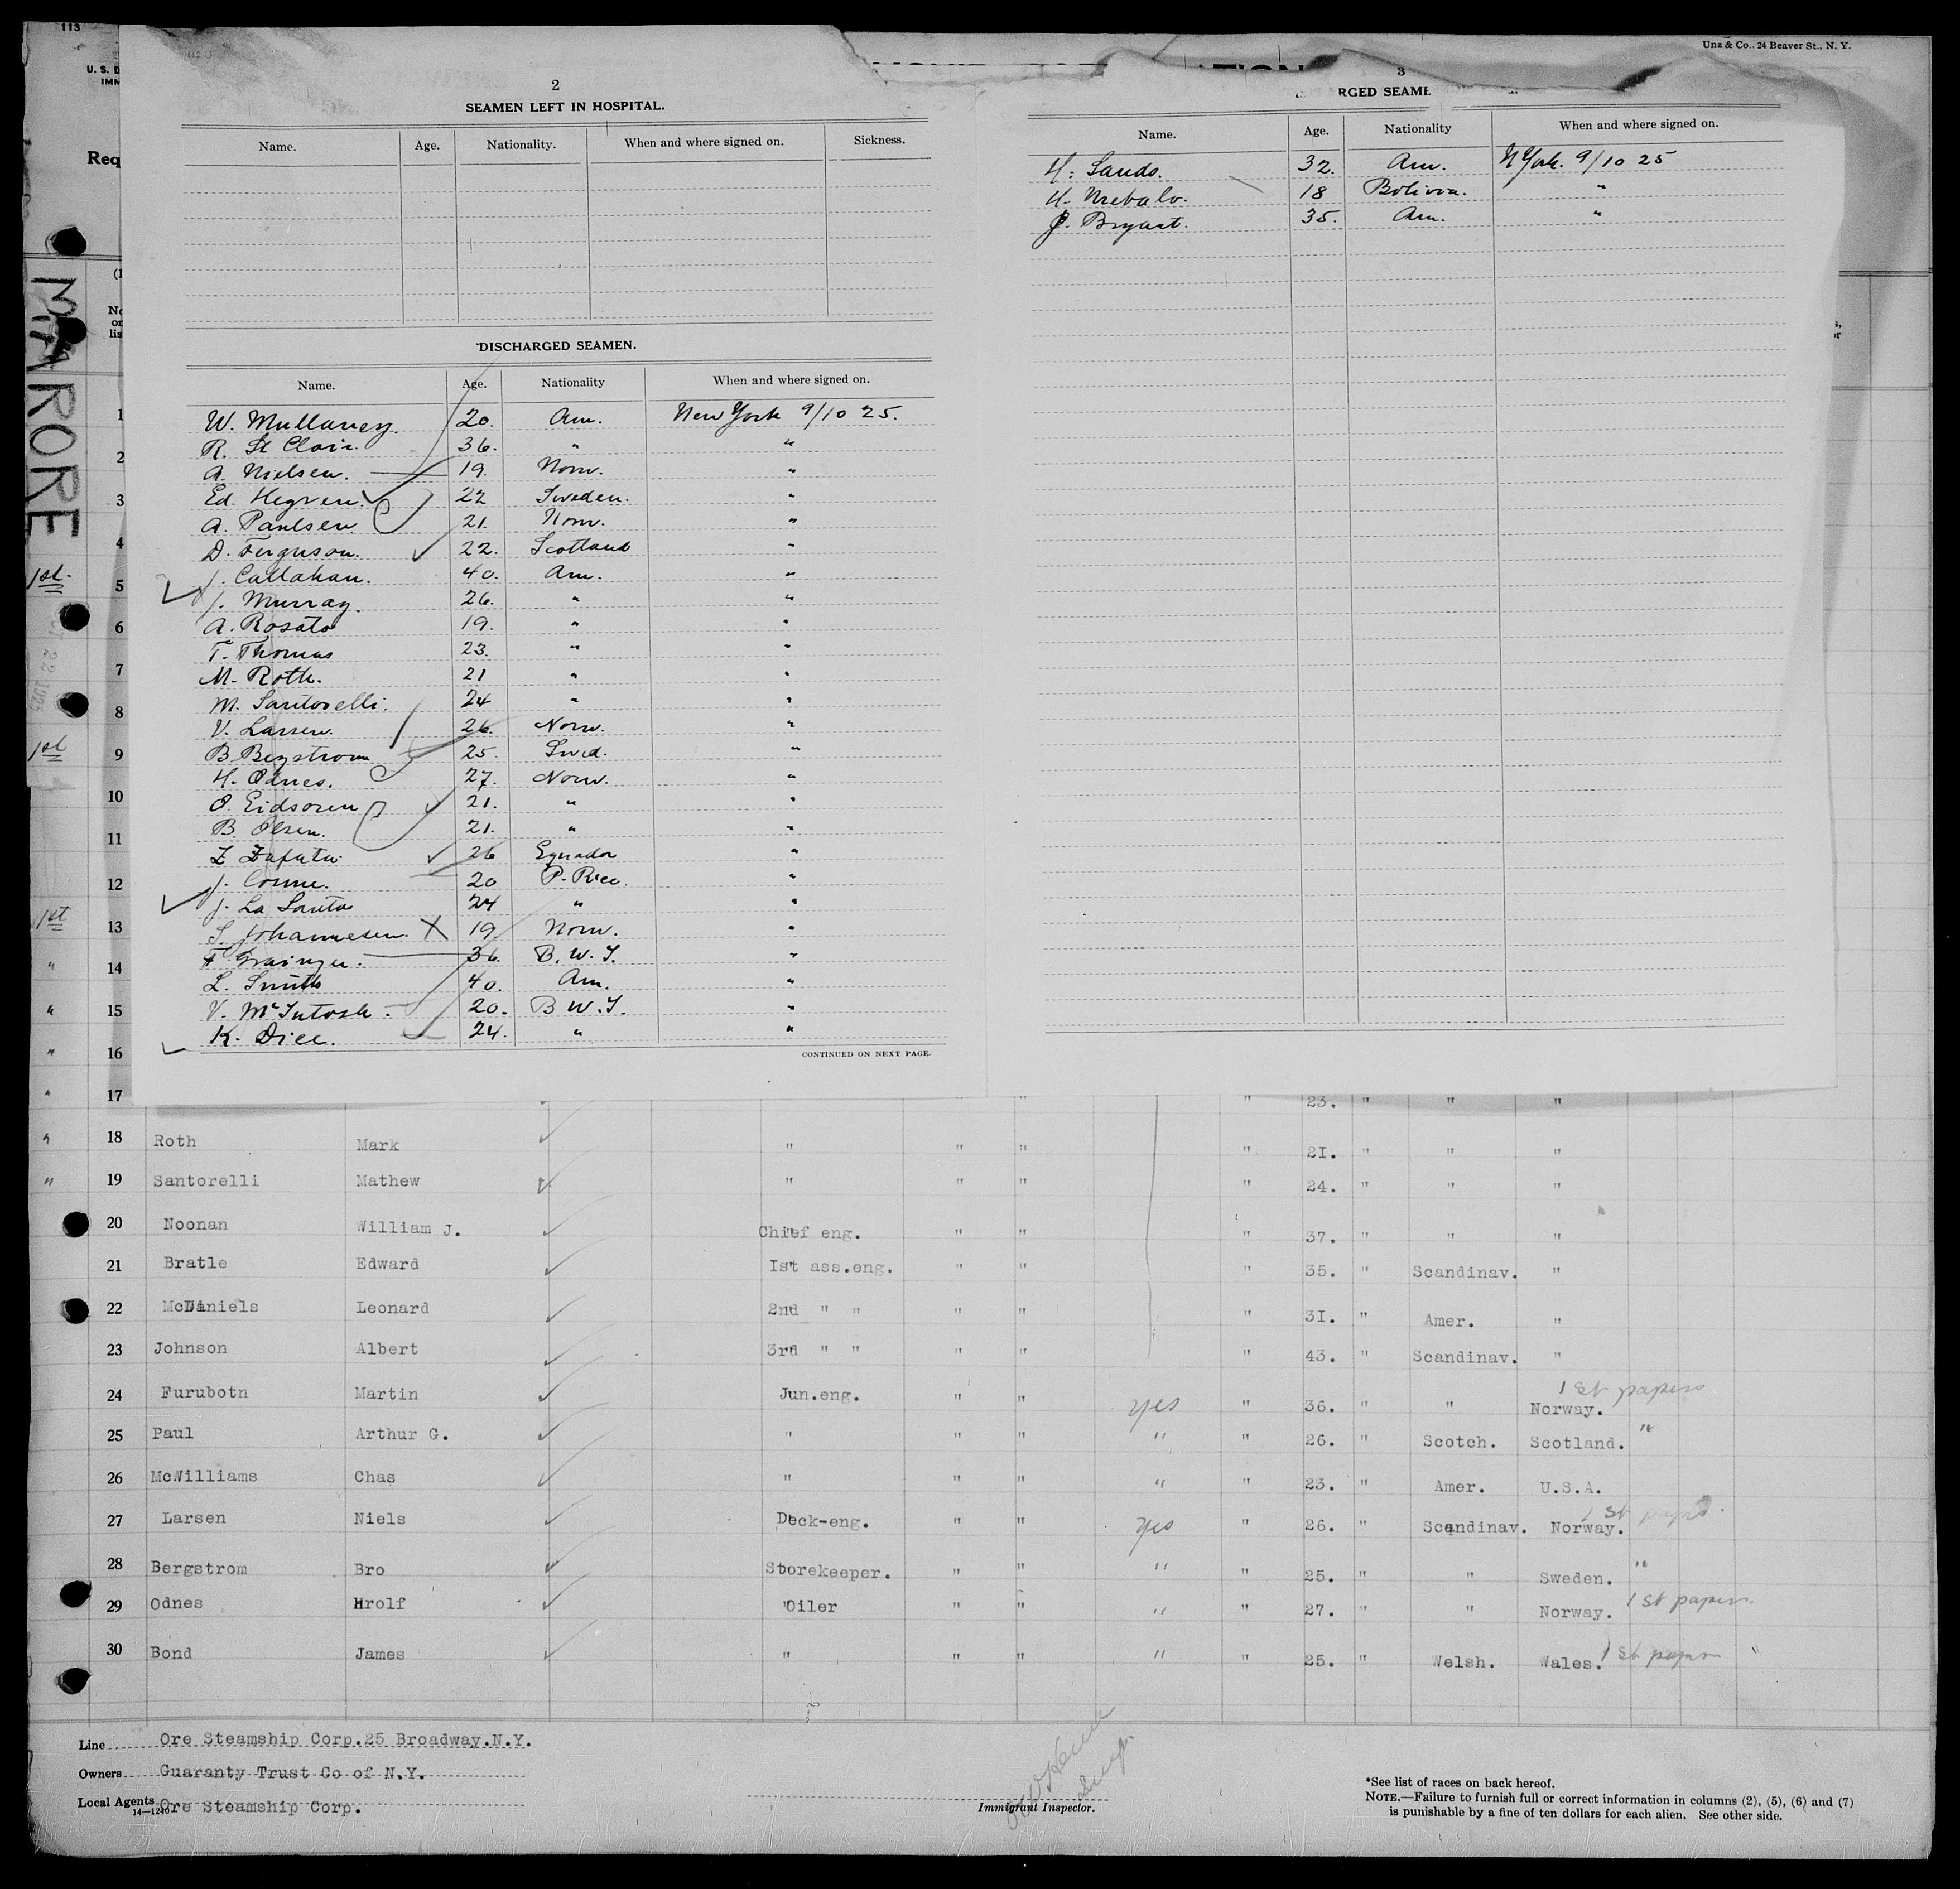 113
Unz & Co., 24 Beaver St., N. Y.
U. S. D
IMM
Req
MARORE
2
SEAMEN LEFT IN HOSPITAL.
Name. Age. Nationality. When and where signed on. Sickness.
DISCHARGED SEAMEN.
Name. Age. Nationality When and where signed on.
W. Mullaney. 20. Am. New York 9/10 25.
R. St Clair. 36. " "
A. Nielsen. 19. Norw. "
Ed. Hegren 22 Sweden. "
A. Paulsen 21. Norw. "
D. Ferguson. 22. Scotland "
J. Callahan. 40. Am. "
J. Murray. 26. " "
A. Rosato 19. " "
T. Thomas 23. " "
M. Roth. 21 " "
M. Santorelli. 24 " "
V. Larsen. 26. Norw. "
B. Begstrom 25. Swed. "
H. Odnes. 27. Norw. "
O. Eidsoren 21. " "
B. Olsen. 21. " "
Z Zafutu. 26 Equador "
J. Corme. 20 P. Rico. "
J. La Santos 24 " "
S. Johannesen. X 19 Norw. "
F Grainger. 36. B. W. I. "
L. Smith 40. Am. "
V. McIntosh. 20. B W. I. "
K. Dice. 24. " "
CONTINUED ON NEXT PAGE.
3
RGED SEAME
Name. Age. Nationality When and where signed on.
H. Sands. 32. Am. N York. 9/10 25
H. 18 Bolivia. "
J. Bryant. 35. Am. "
(1
No
on
lis
1
2
3
4
1st. 5
6
7
8
1st 9
10
11
12
1st 13
" 14
" 15
" 16
" 17 " 23. " " "
" 18 Roth Mark " " " " 21. " " "
" 19 Santorelli Mathew " " " " 24. " " "
20 Noonan William J. Chief eng. " " " 37. " "
21 Bratle Edward Ist ass.eng. " " " 35. " Scandinav. "
22 McDaniels Leonard 2nd " " " " " 31. " Amer. "
23 Johnson Albert 3rd " " " " " 43. " Scandinav. "
24 Furubotn Martin Jun.eng. " " yes " 36. " " Norway. 1st papers
25 Paul Arthur G. " " " " " 26. " Scotch. Scotland. "
26 McWilliams Chas " " " " " 23. " Amer. U.S.A.
27 Larsen Niels Deck-eng. " " yes " 26. " Scandinav. Norway. 1st papers
28 Bergstrom Bro Storekeeper. " " " " 25. " " Sweden. "
29 Odnes Hrolf Oiler " " " " 27. " " Norway. 1st papers
30 Bond James " " " " " 25. " Welsh. Wales. 1st papers "
Line Ore Steamship Corp.25 Broadway.N.Y.
Owners Guaranty Trust Co of N.Y.
Local Agents Ore Steamship Corp.
14-1240
Immigrant Inspector.
*See list of races on back hereof.
NOTE.—Failure to furnish full or correct information in columns (2), (5), (6) and (7)
is punishable by a fine of ten dollars for each alien. See other side.